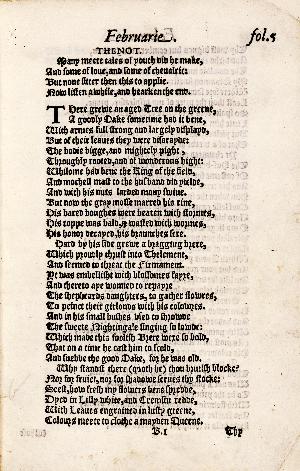 Februarie.
fol.5
THENOT.
Many meete tales of youth did he make,
And some of loue, and some of cheualrie:
But none fitter then this to applie.
Now listen a while, and hearken the end.
THere grewe an aged Tree on the greene,
A goodly Oake sometime had it bene,
With armes full strong and largely displayd,
But of their leaues they were disarayde:
The bodie bigge, and mightily pight,
Throughly rooted, and of wonderous hight:
Whilome had bene the King of the field,
And mochell mast to the husband did yielde,
And with his nuts larded many swine.
But now the gray mosse marred his rine,
His bared boughes were beaten with stormes,
His toppe was bald, & wasted with wormes,
His honor decayed, his braunches sere.
Hard by his side grewe a bragging brere,
Which prowdly thrust into Thelement,
And seemed to threat the Firmament.
Yt was embellisht with blossomes fayre,
And thereto aye wonned to repayre
The shepheards daughters, to gather flowres,
To peinct their girlonds with his colowres.
And in his small bushes vsed to shrowde
The sweete Nightingale singing so lowde:
Which made this foolish Brere wexe so bold,
That on a time he cast him to scold,
And snebbe the good Oake, for he was old.
Why standst there (quoth he) thou brutish blocke?
Nor for fruict, nor for shadowe serues thy stocke:
Seest, how fresh my flowers bene spredde,
Dyed in Lilly white, and Cremsin redde,
With Leaues engrained in lusty greene,
Colours meete to clothe a mayden Queene.
B.1
Thy